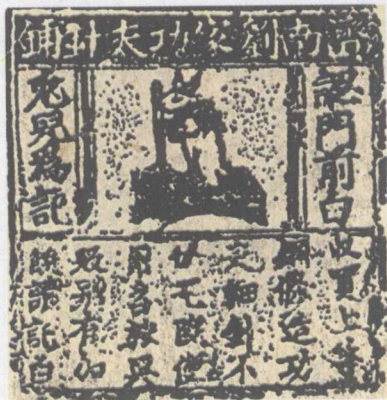 濟南劉家功夫針鋪
認門前白
兔兒為記
收買上等
鋼條造功
夫細針不
宅院使
用
販別有加
饒請記白